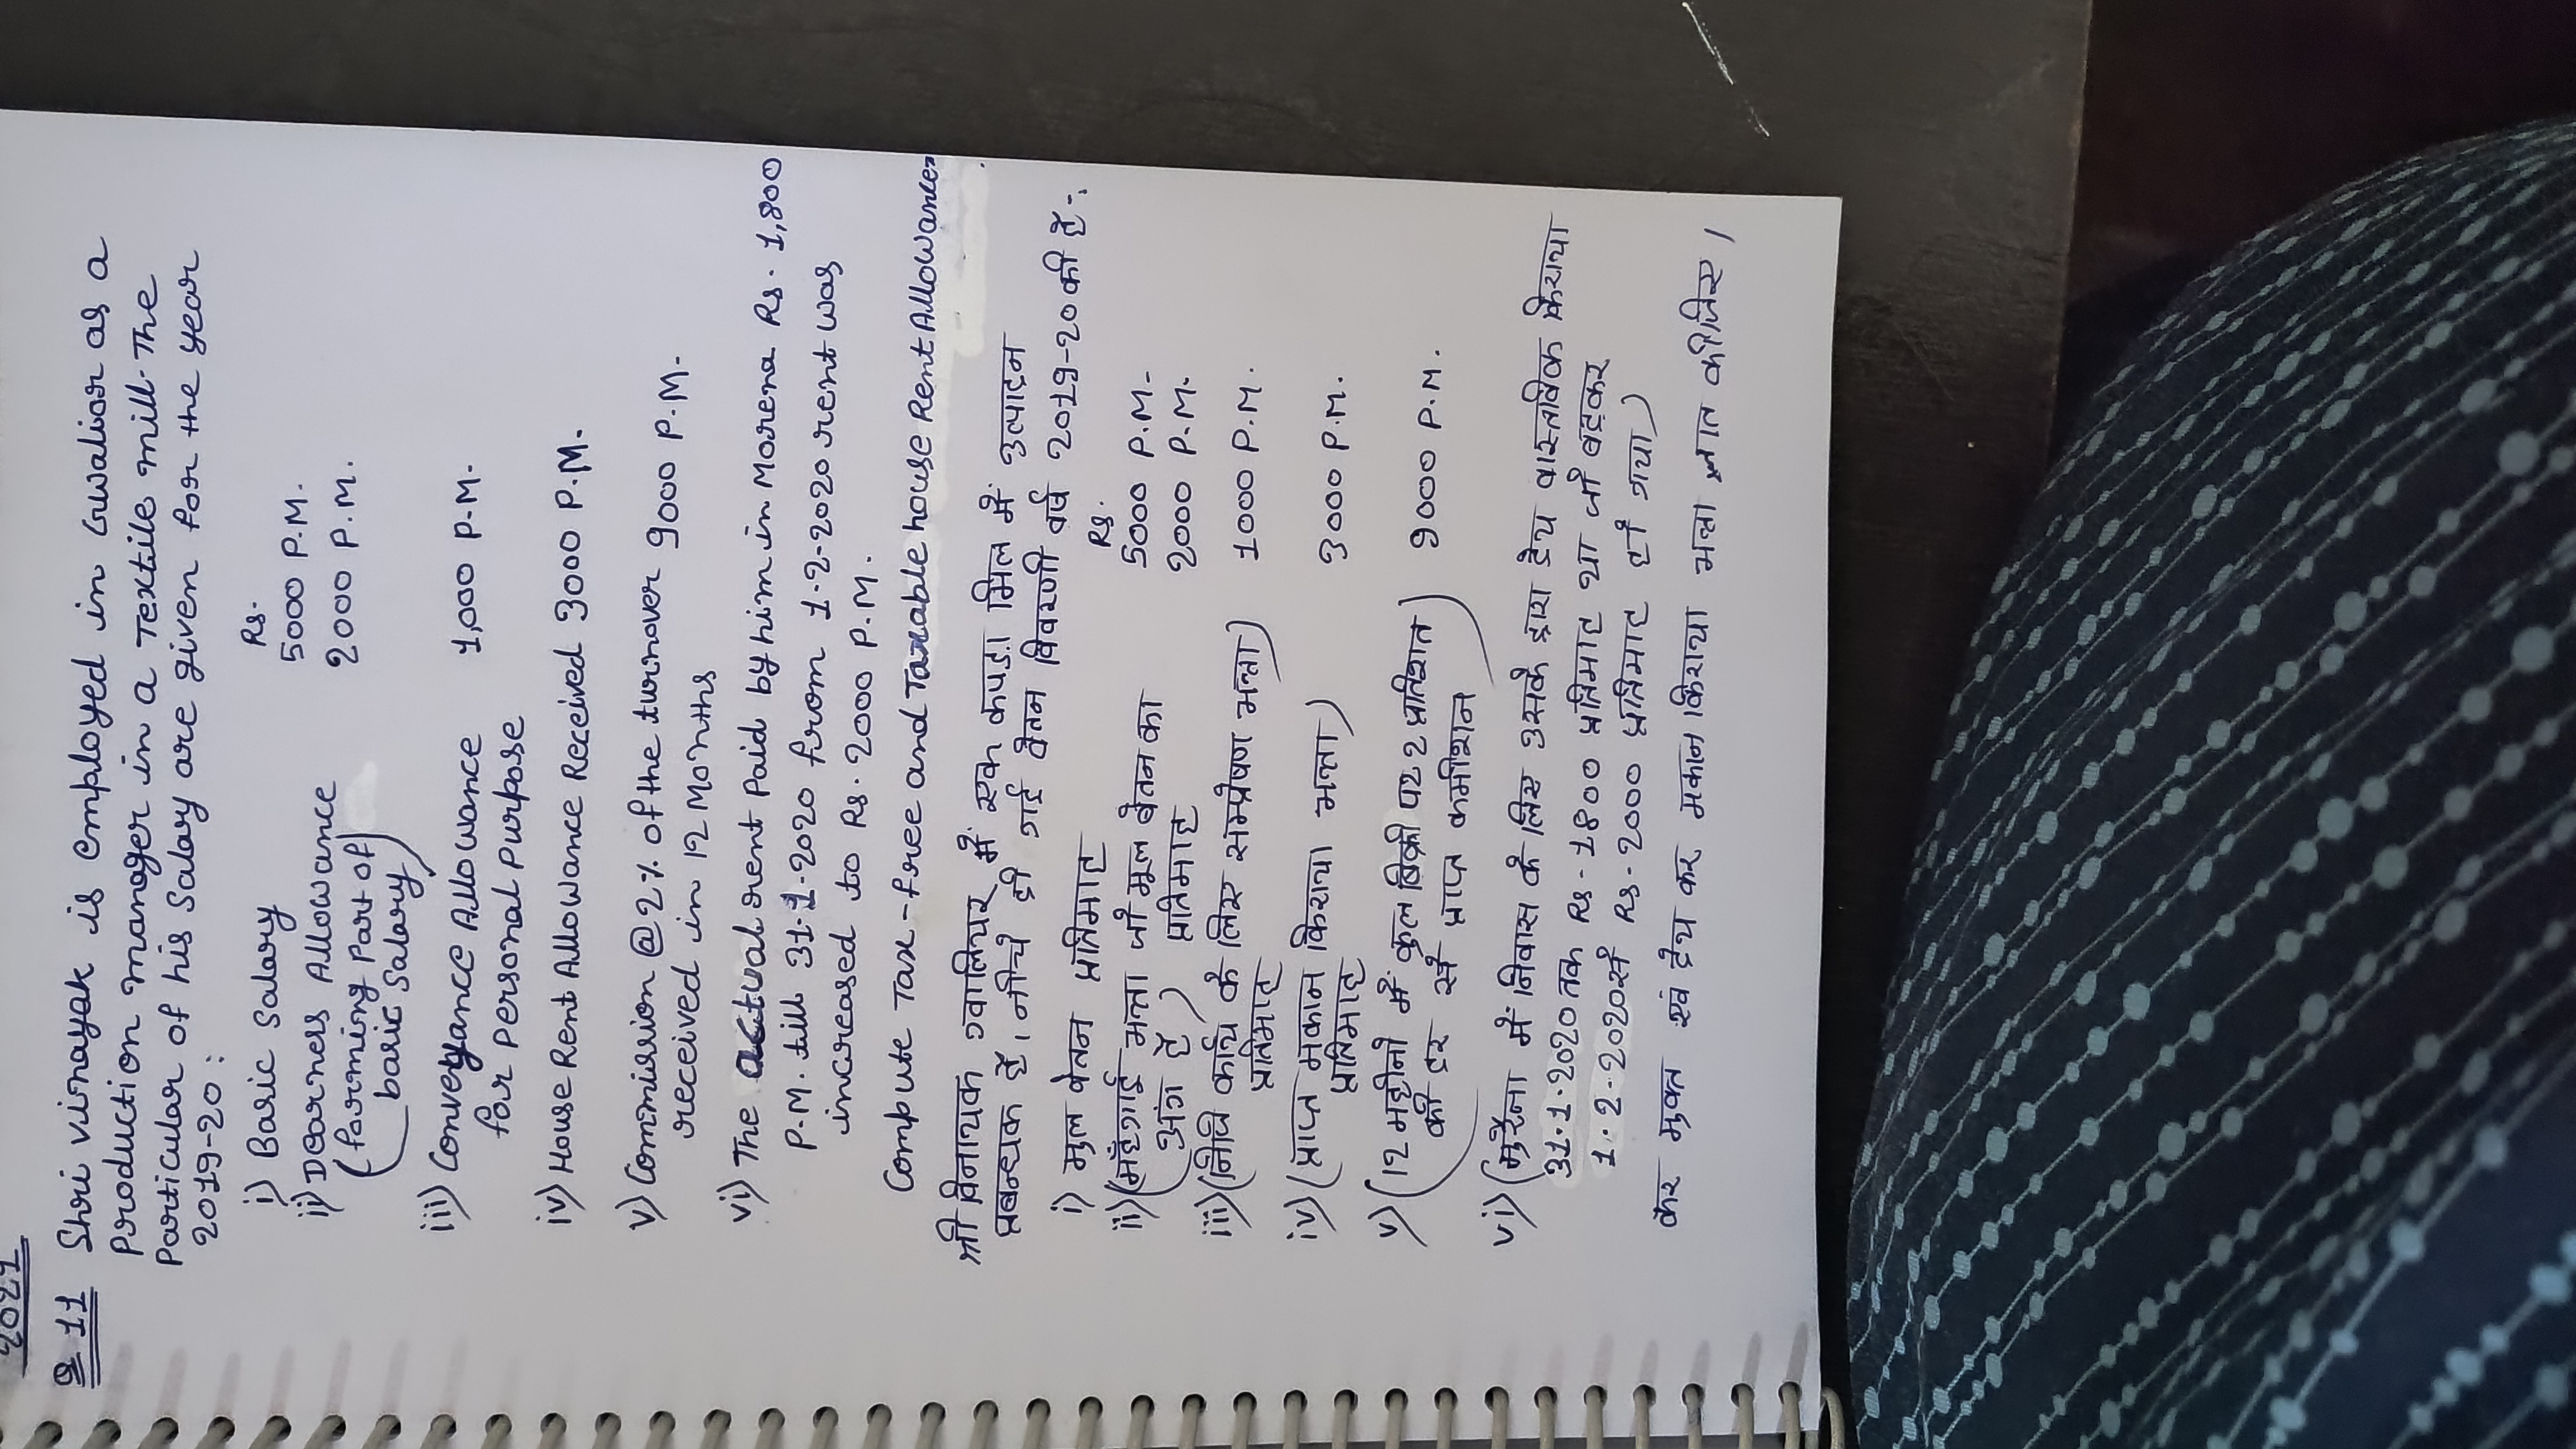 2021
Q 11 Shri vinayak is employed in Gwalior as a
production manager in a Textile mill. The
Particular of his Salary are given for the year
2019-20 :
Rs.
i) Basic Salary 5000 P.M.
ii) Dearness Allowance 2000 P.M.
(forming part of
basic Salary)
iii) Conveyance Allowance 1,000 P.M.
for personal purpose
iv) House Rent Allowance Received 3000 P.M.
v) Commission @ 2% of the turnover 9000 P.M.
received in 12 Months
vi) The actual rent paid by him in Morena Rs. 1,800
P.M. till 31.1.2020 from 1.2.2020 rent was
increased to Rs. 2000 P.M.
Compute Tax-free and Taxable house Rent Allowance.
श्री विनायक ग्वालियर में एक कपड़ा मिल में उत्पादन
प्रबन्धक है, नीचे दी गई वेतन विवरणी वर्ष 2019-20 की है -:
Rs.
i) मुल वेतन प्रतिमाह 5000 P.M.
ii) (महँगाई भत्ता जो मूल वेतन का
अंग है) प्रतिमाह 2000 P.M.
iii) (निजि कार्य के लिए सम्प्रेषण भत्ता) 1000 P.M.
प्रतिमाह
iv) (प्राप्त मकान किराया भत्ता) 3000 P.M.
प्रतिमाह
v) (12 महीनो में कुल बिक्री पर 2 प्रतिशत 9000 P.M.
की दर से प्राप्त कमीशन)
vi) (मुरैना में निवास के लिए उसके द्वारा देय वास्तविक किराया
31.1.2020 तक Rs - 1800 प्रतिमाह था जो बढ़कर
1.2.2020 से Rs - 2000 प्रतिमाह हो गया)
कर मुक्त एवं देय कर मकान किराया भत्ता ज्ञात कीजिए।